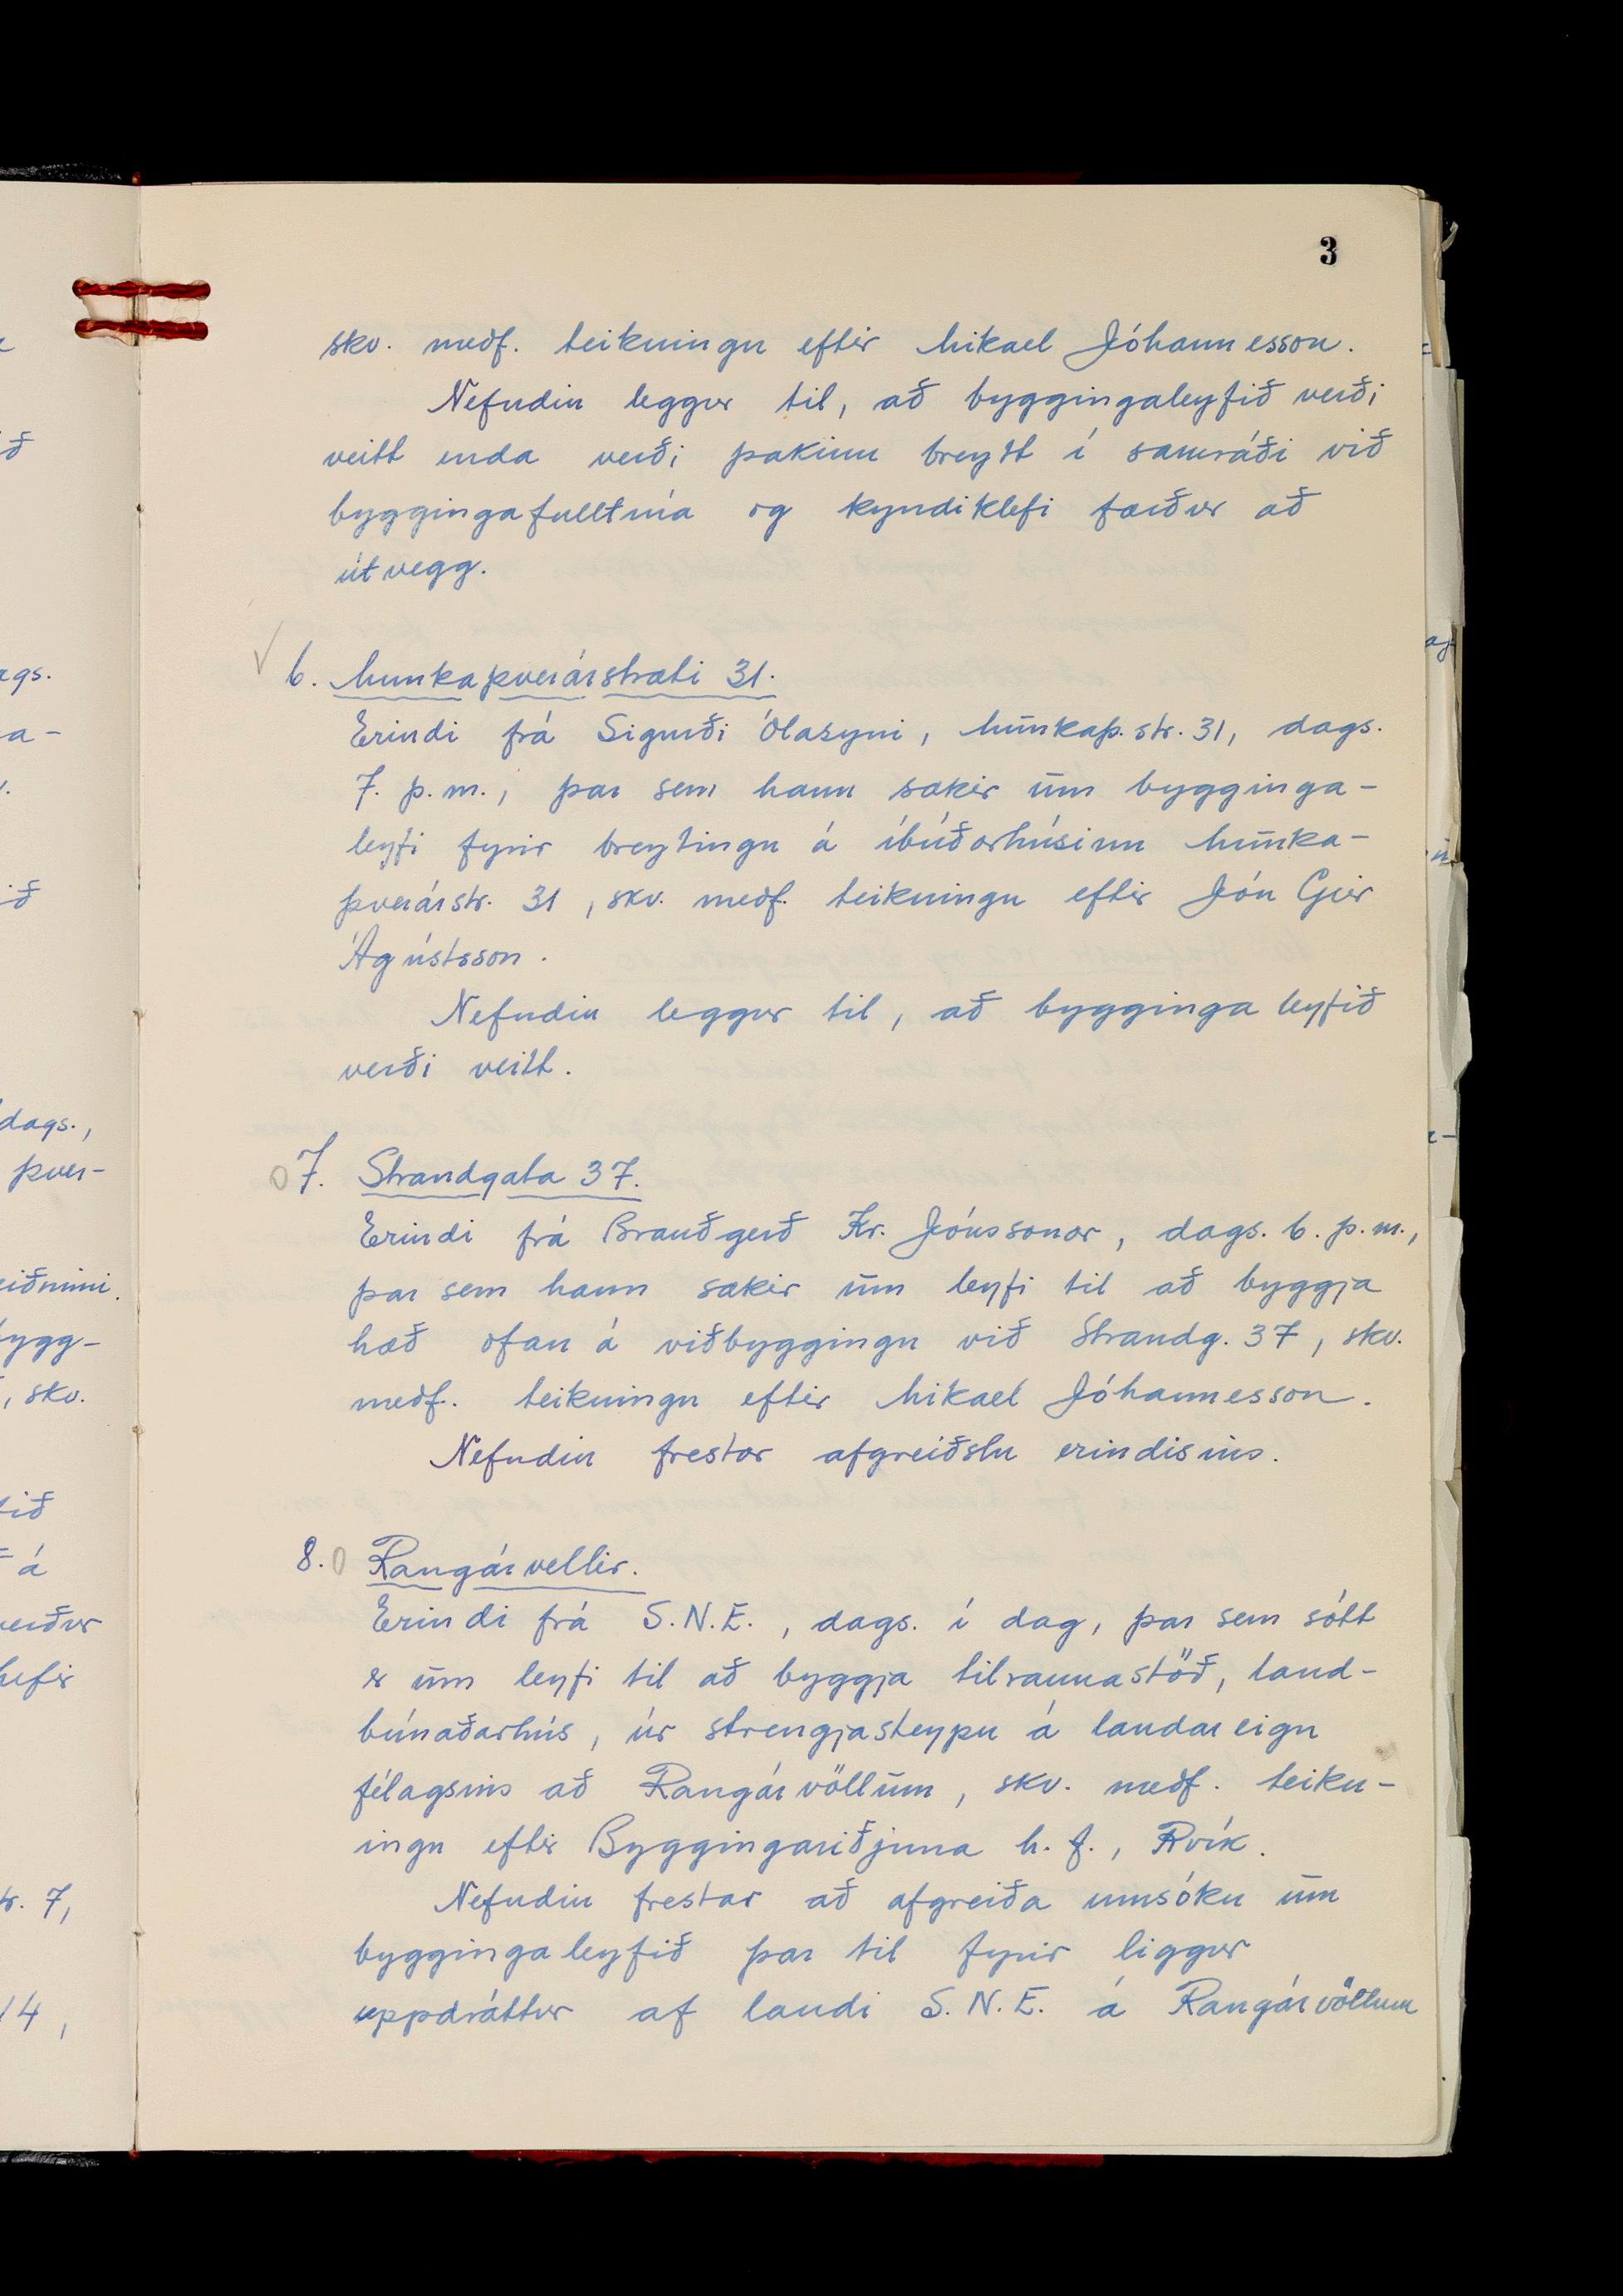 3
skv. meðf. teikningu eftir Mikael Jóhannesson.
Nefndin leggur til, að byggingaleyfið verði
veitt enda verði þakinu breytt í samráði við
byggingafulltrúa og kyndiklefi færður að
útvegg.
6. Munkaþverárstræti 31.
Erindi frá Sigurði Ólasyni, Munkaþ.str. 31, dags.
7. þ.m., þar sem hann sækir um bygginga-
leyfi fyrir breytingu á íbúðarhúsinu Munka-
þverárstr. 31, skv. meðf. teikningu eftir Jón Geir
Ágústsson.
Nefndin leggur til, að byggingaleyfið
verði veitt.
7. Strandgata 37.
Erindi frá Brauðgerð Kr. Jónssonar, dags. 6. þ.m.,
þar sem hann sækir um leyfi til að byggja
hæð ofan á viðbyggingu við Strandg. 37, skv.
meðf. teikningu eftir Mikael Jóhannesson.
Nefndin frestar afgreiðslu erindisins.
8. Rangárvellir.
Erindi frá S.N.E., dags. í dag, þar sem sótt
er um leyfi til að byggja tilraunastöð, land-
búnaðarhús, úr strengjasteypu á landareign
félagsins að Rangárvöllum, skv. meðf. teikn-
ingu eftir Byggingariðjuna h.f., Rvík.
Nefndin frestar að afgreiða umsókn um
byggingaleyfið þar til fyrir liggur
uppdráttur af landi S.N.E. á Rangárvöllum